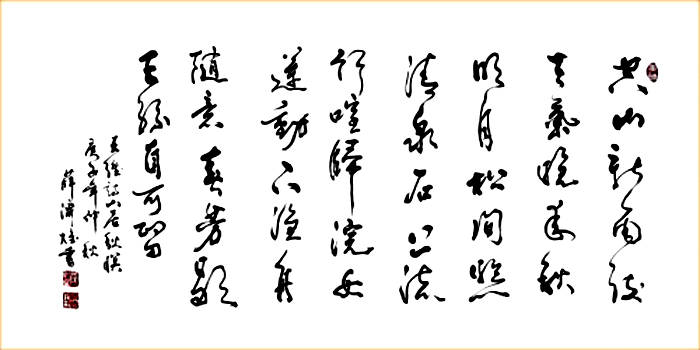 空山新雨後
天氣晚來秋
明月松間照
清泉石上流
竹喧歸浣女
蓮動下漁舟
隨意春芳歇
王孫自可留
王維詩山居秋暝
庚子年仲秋
薛書